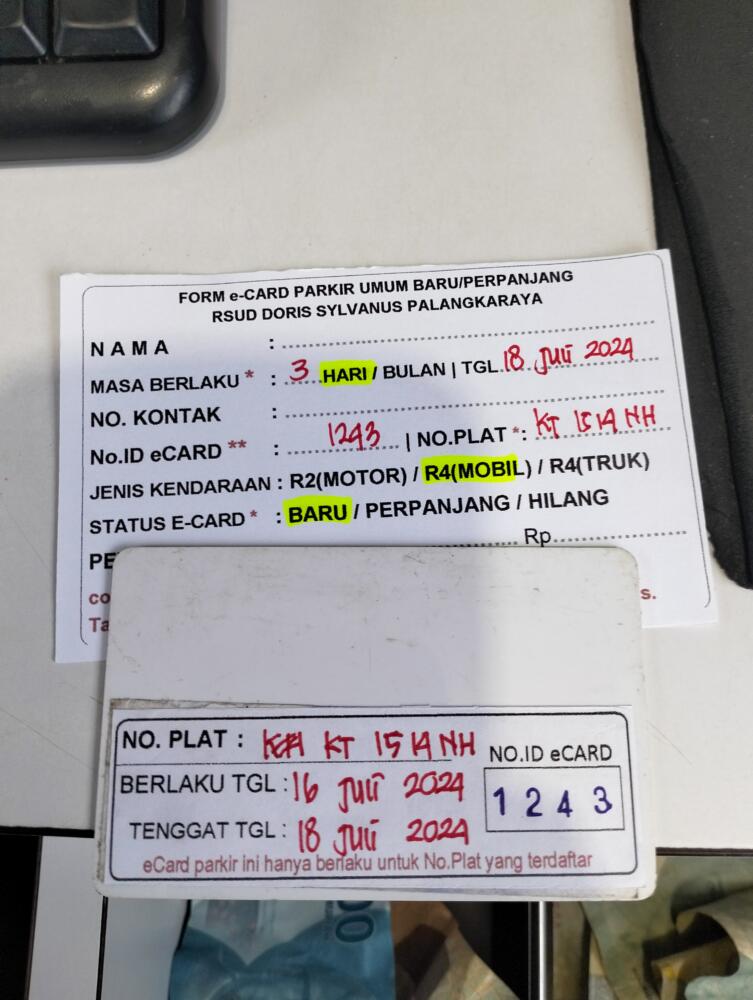 FORM e-CARD PARKIR UMUM BARU/PERPANJANG
RSUD DORIS SYLVANUS PALANGKARAYA
NAMA :
MASA BERLAKU * : 3 HARI / BULAN | TGL. 18 Juli 2024
NO. KONTAK :
No.ID eCARD ** : 1243 | NO.PLAT *: KT 1514 NH
JENIS KENDARAAN : R2(MOTOR) / R4(MOBIL) / R4(TRUK)
STATUS E-CARD * : BARU / PERPANJANG / HILANG
Rp
NO. PLAT : KT 1514 NH
NO.ID eCARD
BERLAKU TGL : 16 Juli 2024
1243
TENGGAT TGL : 18 Juli 2024
eCard parkir ini hanya berlaku untuk No.Plat yang terdaftar